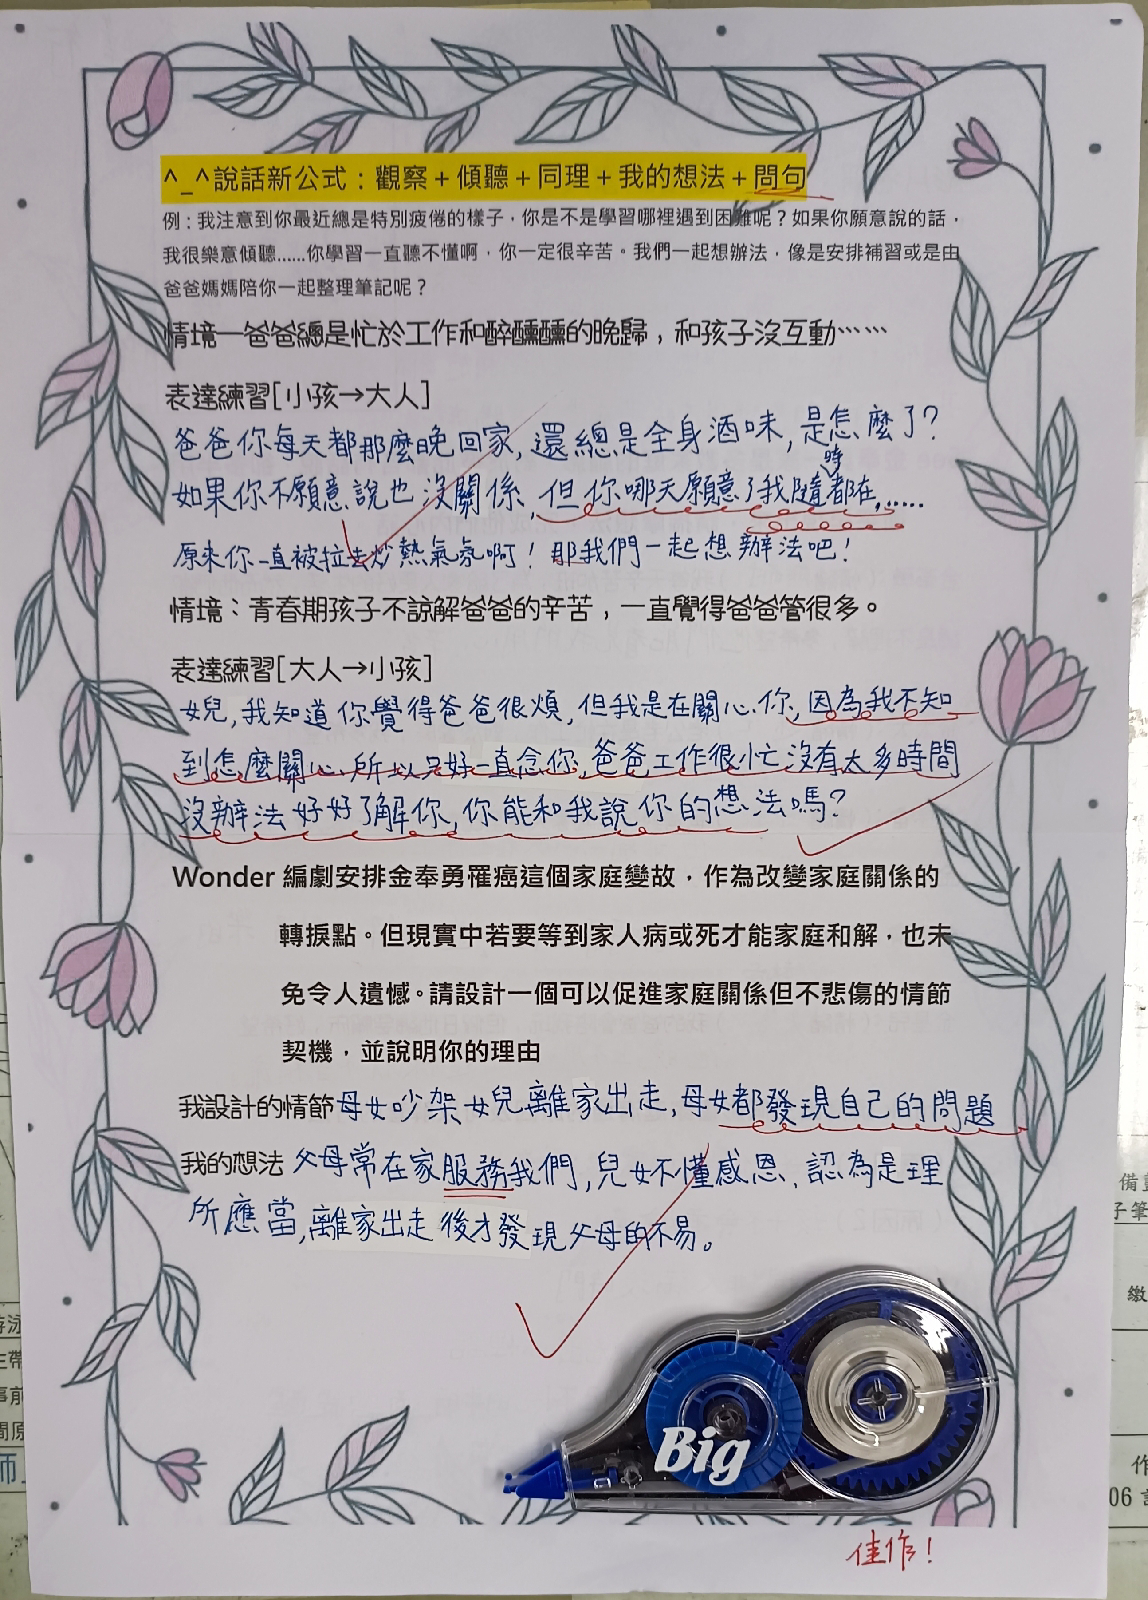 ^_^說話新公式：觀察＋傾聽＋同理＋我的想法＋問句
例：我注意到你最近總是特別疲倦的樣子，你是不是學習哪裡遇到困難呢？如果你願意說的話，
我很樂意傾聽……你學習一直聽不懂啊，你一定很辛苦。我們一起想辦法，像是安排補習或是由
爸爸媽媽陪你一起整理筆記呢？
情境一爸爸總是忙於工作和醉醺醺的晚歸，和孩子沒互動……
表達練習[小孩→大人]
爸爸你每天都那麼晚回家,還總是全身酒味,是怎麼了?
如果你不願意說也沒關係,但你哪天願意了我隨時都在,.....
原來你一直被拉去炒熱氣氛啊!那我們一起想辦法吧!
情境：青春期孩子不諒解爸爸的辛苦，一直覺得爸爸管很多。
表達練習[大人→小孩]
女兒,我知道你覺得爸爸很煩,但我是在關心你,因為我不知
到怎麼關心所以只好一直念你,爸爸工作很忙沒有太多時間
沒辦法好好了解你,你能和我說你的想法嗎?
Wonder 編劇安排金奉勇罹癌這個家庭變故，作為改變家庭關係的
轉捩點。但現實中若要等到家人病或死才能家庭和解，也未
免令人遺憾。請設計一個可以促進家庭關係但不悲傷的情節
契機，並說明你的理由
我設計的情節 母女吵架女兒離家出走,母女都發現自己的問題
我的想法 父母常在家服務我們,兒女不懂感恩、認為是理
所應當,離家出走後才發現父母的不易。
Big
佳作!
備
子筆
繳
作
06
游泳
主帶
事前
間原
師